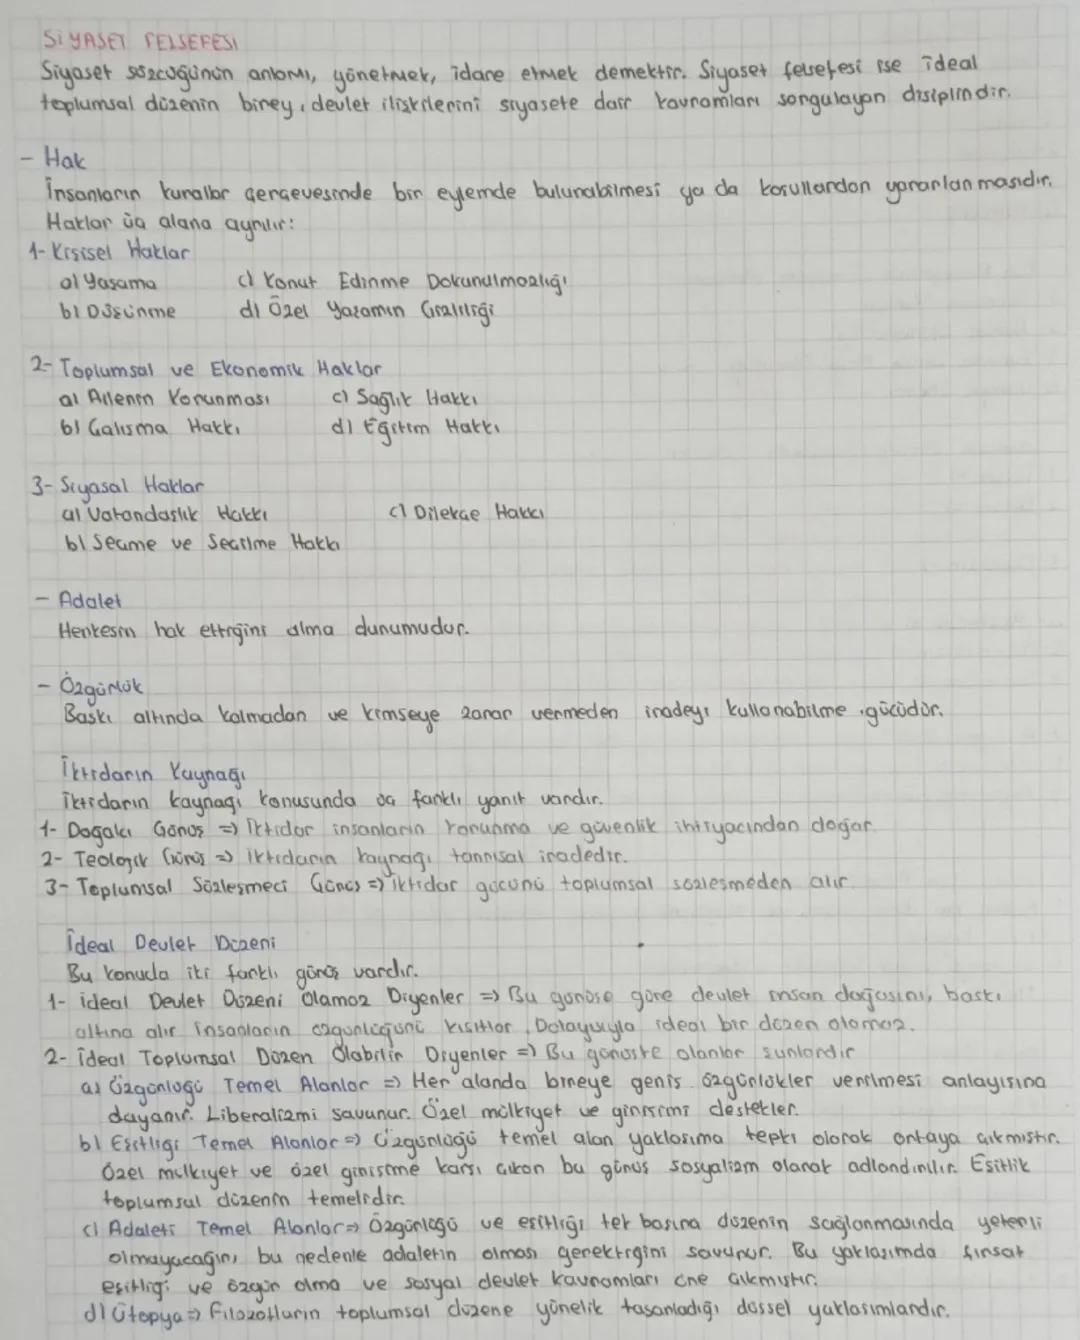 SİYASET FELSEFESİ
Siyaset sözcüğünün anlamı, yönetmek, idare etmek demektir. Siyaset felsefesi ise ideal
toplumsal düzenin birey, devlet ilişkilerini siyasete dair kavramları sorgulayan disiplindir.
- Hak
İnsanların kurallar çerçevesinde bir eylemde bulunabilmesi ya da koşullardan yararlanmasıdır.
Haklar üç alana ayrılır:
1- Kişisel Haklar
a) Yaşama c) Konut Edinme Dokunulmazlığı
b) Düşünme d) Özel Yaşamın Gizliliği
2- Toplumsal ve Ekonomik Haklar
a) Ailenin Korunması c) Sağlık Hakkı
b) Çalışma Hakkı d) Eğitim Hakkı
3- Siyasal Haklar
a) Vatandaşlık Hakkı c) Dilekçe Hakkı
b) Seçme ve Seçilme Hakkı
- Adalet
Herkesin hak ettiğini alma durumudur.
- Özgürlük
Baskı altında kalmadan ve kimseye zarar vermeden iradeyi kullanabilme gücüdür.
İktidarın Kaynağı
İktidarın kaynağı konusunda üç farklı yanıt vardır.
1- Doğalcı Görüş => İktidar insanların korunma ve güvenlik ihtiyacından doğar.
2- Teolojik Görüş => İktidarın kaynağı tanrısal iradedir.
3- Toplumsal Sözleşmeci Görüş => İktidar gücünü toplumsal sözleşmeden alır.
İdeal Devlet Düzeni
Bu konuda iki farklı görüş vardır.
1- İdeal Devlet Düzeni Olamaz Diyenler => Bu görüşe göre devlet insan doğasını, baskı
altına alır insanların özgürlüğünü kısıtlar. Dolayısıyla ideal bir düzen olamaz.
2- İdeal Toplumsal Düzen Olabilir Diyenler => Bu görüşte olanlar şunlardır
a) Özgürlüğü Temel Alanlar => Her alanda bireye geniş özgürlükler verilmesi anlayışına
dayanır. Liberalizmi savunur. Özel mülkiyet ve girişimi destekler.
b) Eşitliği Temel Alanlar => Özgürlüğü temel alan yaklaşıma tepki olarak ortaya çıkmıştır.
Özel mülkiyet ve özel girişime karşı çıkan bu görüş sosyalizm olarak adlandırılır. Eşitlik
toplumsal düzenin temelidir.
c) Adaleti Temel Alanlar => Özgürlüğü ve eşitliği tek başına düzenin sağlanmasında yeterli
olmayacağını, bu nedenle adaletin olması gerektiğini savunur. Bu yaklaşımda fırsat
eşitliği ve özgür olma ve sosyal devlet kavramları öne çıkmıştır.
d) Ütopya => Filozofların toplumsal düzene yönelik tasarladığı düşsel yaklaşımlardır.